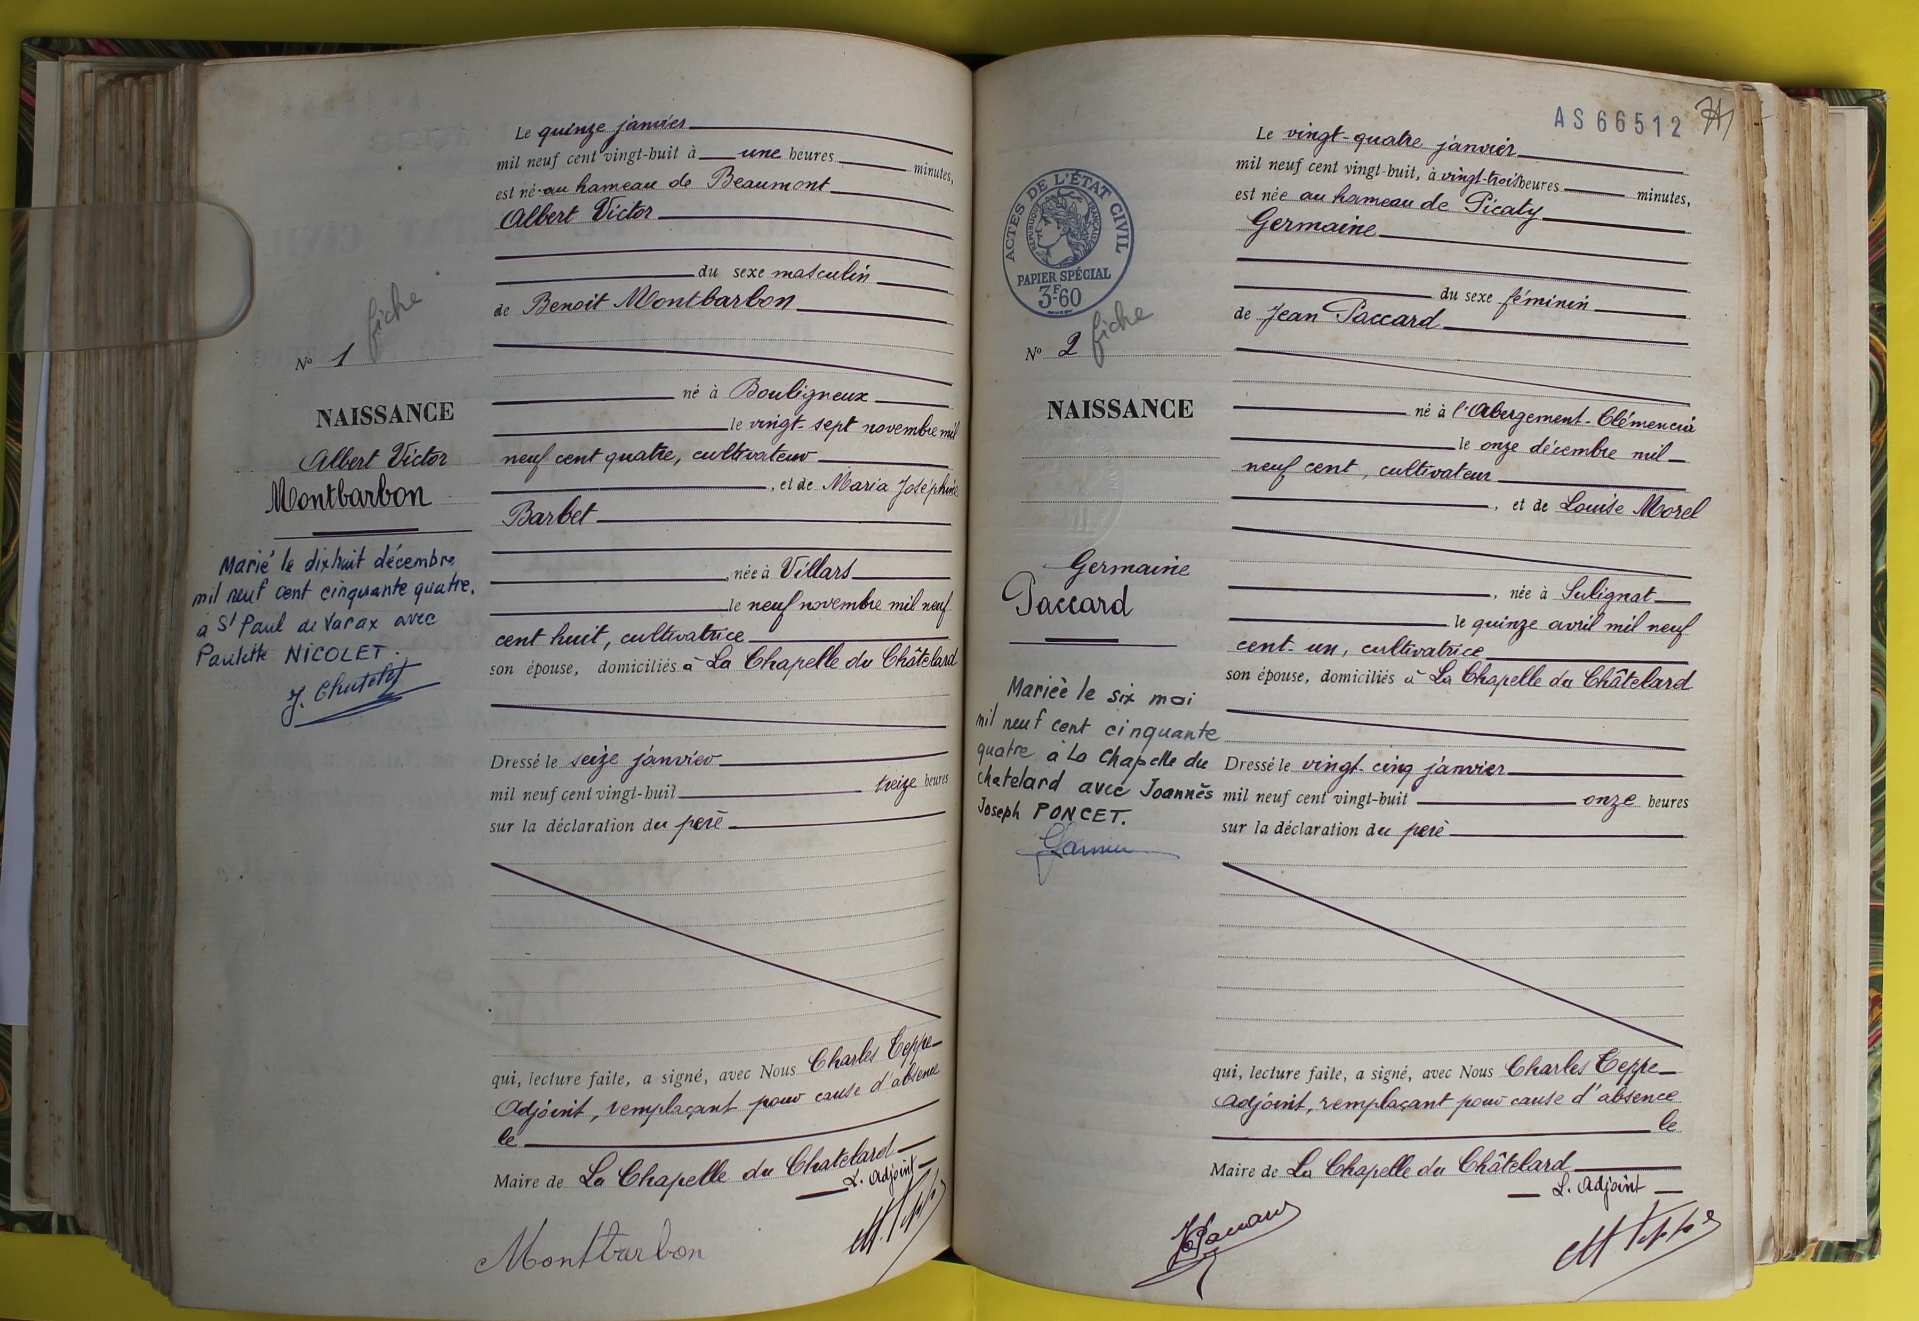 Le quinze janvier
mil neuf cent vingt-huit à une heures minutes,
est né au hameau de Beaumont
Albert Victor
du sexe masculin
de Benoit Montbarbon
né à Bouligneux
le vingt-sept novembre mil
neuf cent quatre, cultivateur
, et de Maria Joséphine
Barbet
, née à Villars
le neuf novembre mil neuf
cent huit, cultivatrice
son épouse, domiciliés à La Chapelle du Châtelard
Dressé le seize janvier
mil neuf cent vingt-huit treize heures
sur la déclaration du père
qui, lecture faite, a signé, avec Nous Charles Teppe
Adjoint, remplaçant pour cause d'absence
le
Maire de La Chapelle du Chatelard
L. Adjoint
Montbarbon
fiche
No 1
NAISSANCE
Albert Victor
Montbarbon
Marié le dixhuit décembre
mil neuf cent cinquante quatre.
à St Paul de Varax avec
Paulette NICOLET.
J. Chatelet
AS66512
Le vingt-quatre janvier
mil neuf cent vingt-huit, à vingt-trois heures minutes,
est née au hameau de Picaty
Germaine
du sexe féminin
de Jean Paccard
né à l'Abergement-Clémencia
le onze décembre mil
neuf cent, cultivateur
, et de Louise Morel
, née à Sulignat
le quinze avril mil neuf
cent-un, cultivatrice
son épouse, domiciliés à La Chapelle du Châtelard
Dressé le vingt-cinq janvier
mil neuf cent vingt-huit onze heures
sur la déclaration du père
qui, lecture faite, a signé, avec Nous Charles Teppe
Adjoint, remplaçant pour cause d'absence
le
Maire de La Chapelle du Châtelard
L. Adjoint
ACTES DE L'ÉTAT CIVIL
RÉPUBLIQUE FRANÇAISE
PAPIER SPÉCIAL
3F60
fiche
No 2
NAISSANCE
Germaine
Paccard
Mariée le six mai
mil neuf cent cinquante
quatre à La Chapelle du
chatelard avec Joannès
Joseph PONCET.